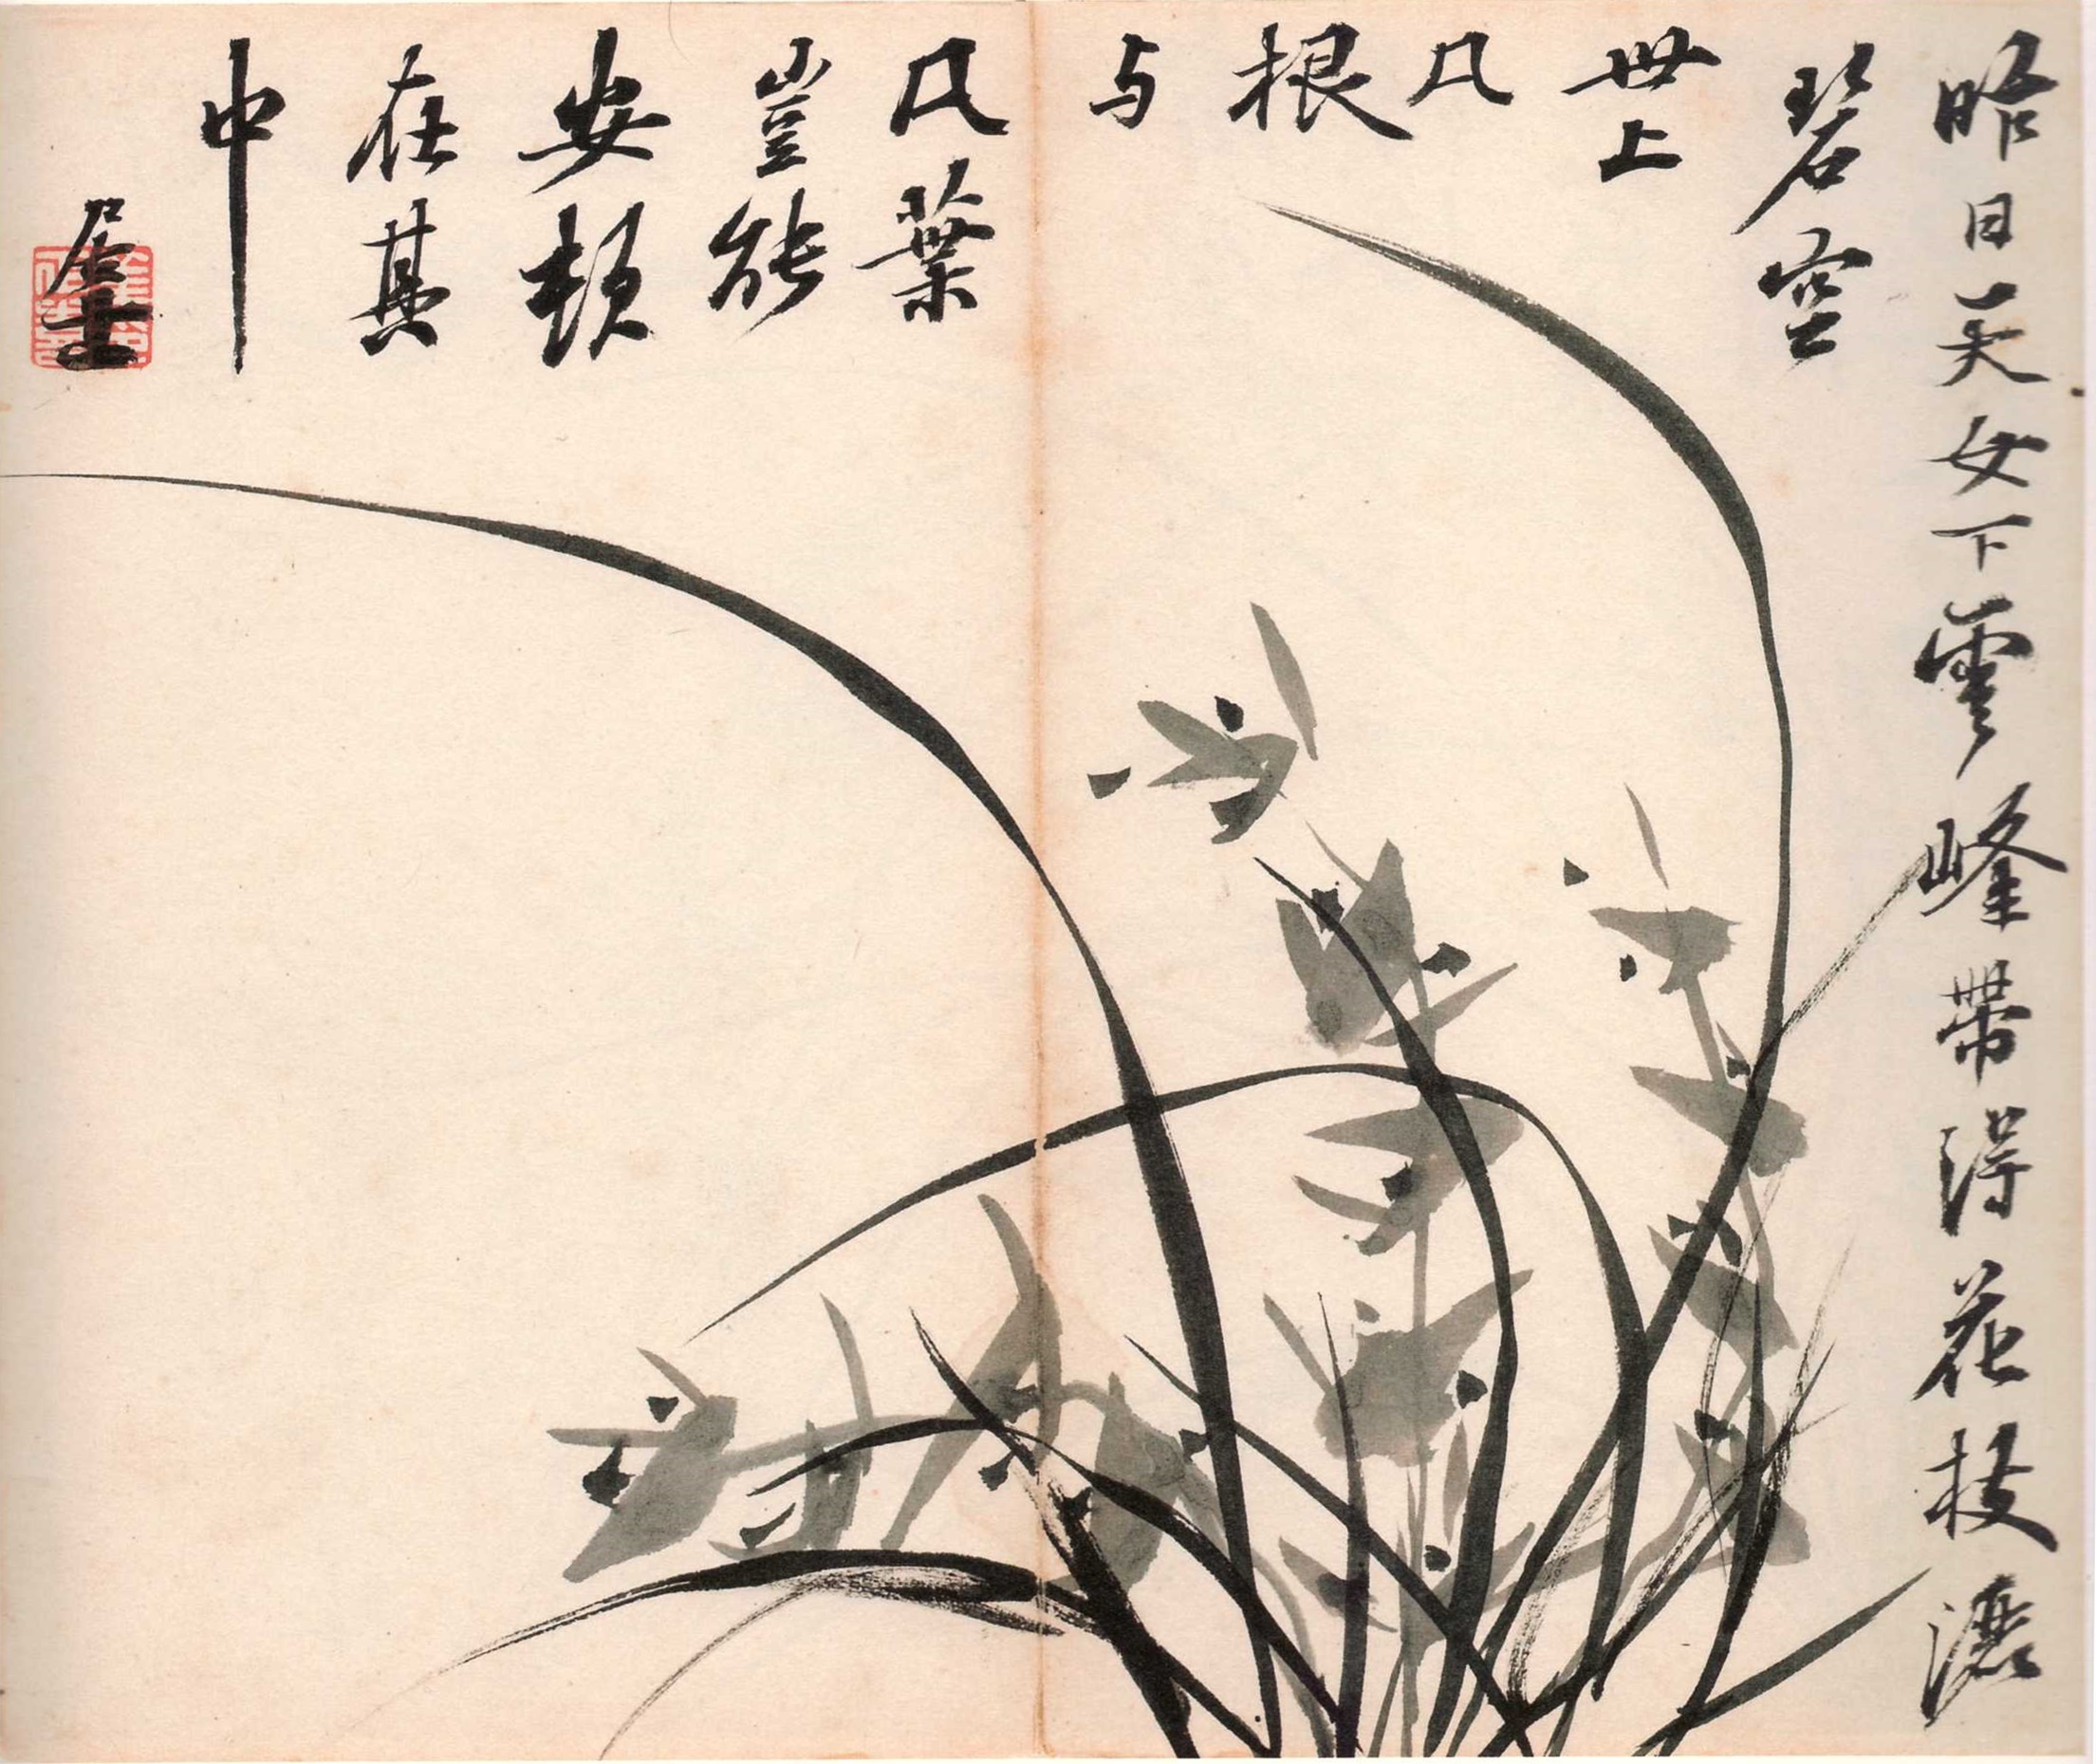 昨日天女下雲峰帶得花枝灑
碧空
世上
凡
根
与
凡葉
豈能
安頓
在其
中
居士